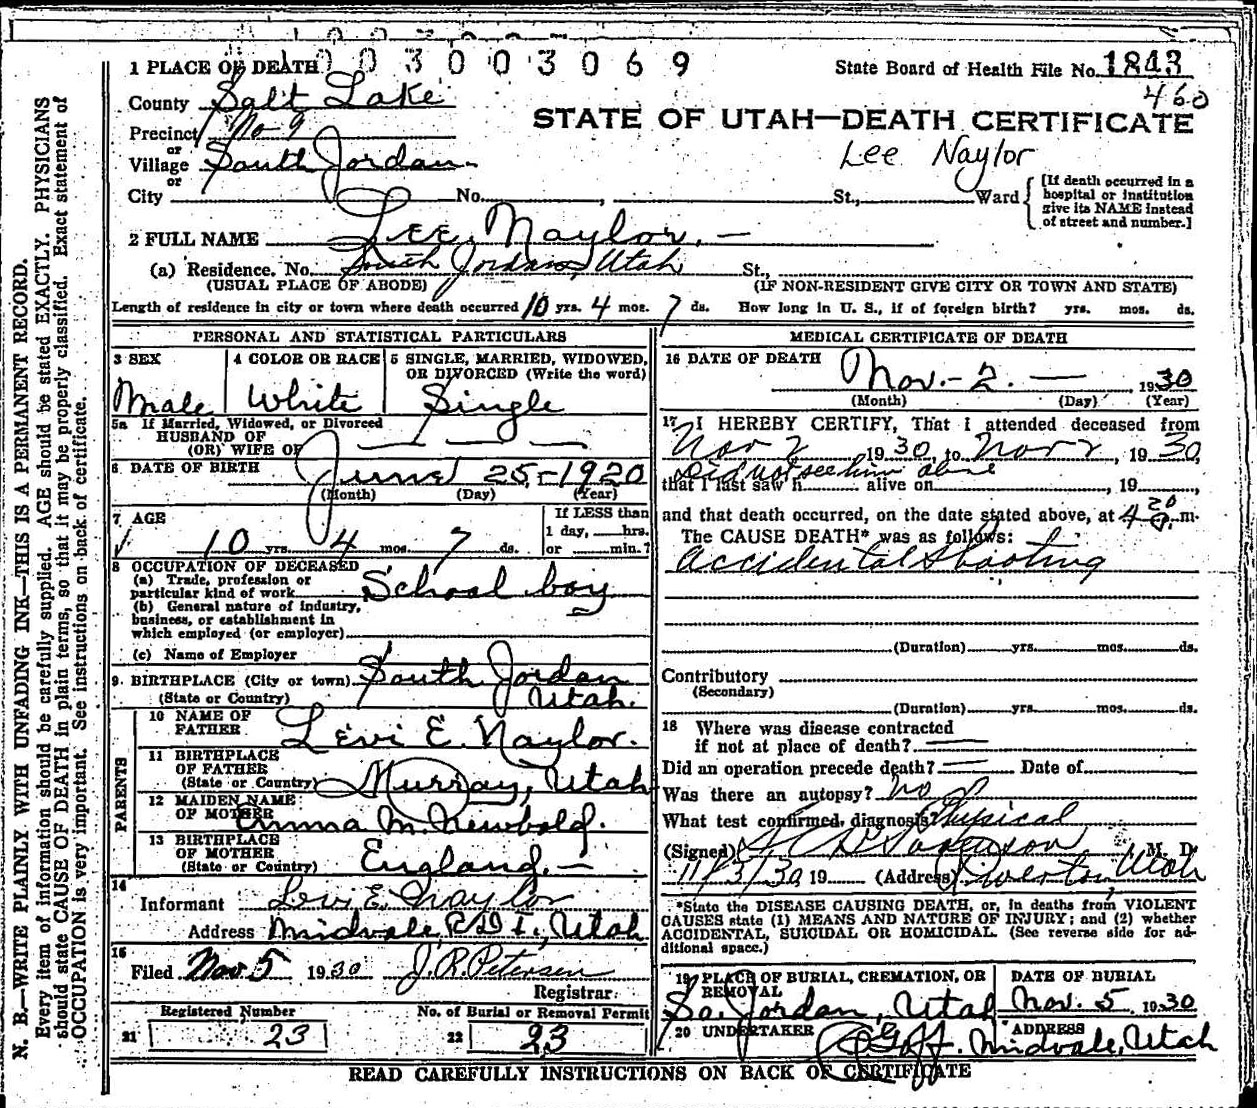 0 0 3 0 0 3 0 6 9
1 PLACE OF DEATH
State Board of Health File No. 1843
460
County Salt Lake
STATE OF UTAH—DEATH CERTIFICATE
Precinct No 9
or
Lee Naylor
Village South Jordan
or
City No. , St., Ward
[If death occurred in a
hospital or institution
give its NAME instead
of street and number.]
2 FULL NAME Lee Naylor. —
(a) Residence. No. South Jordan, Utah St.,
(USUAL PLACE OF ABODE) (IF NON-RESIDENT GIVE CITY OR TOWN AND STATE)
Length of residence in city or town where death occurred 10 yrs. 4 mos. 7 ds. How long in U. S., if of foreign birth? yrs. mos. ds.
PERSONAL AND STATISTICAL PARTICULARS
3 SEX
Male
4 COLOR OR RACE
White
5 SINGLE, MARRIED, WIDOWED,
OR DIVORCED (Write the word)
Single
5a If Married, Widowed, or Divorced
HUSBAND OF
(OR) WIFE OF — — —
6 DATE OF BIRTH June 25 - 1920
(Month) (Day) (Year)
7 AGE
10 yrs. 4 mos. 7 ds.
If LESS than
1 day, hrs.
or min.?
8 OCCUPATION OF DECEASED
(a) Trade, profession or
particular kind of work School boy
(b) General nature of industry,
business, or establishment in
which employed (or employer)
(c) Name of Employer
9. BIRTHPLACE (City or town) South Jordan
(State or Country) Utah.
PARENTS
10 NAME OF
FATHER Levi E. Naylor.
11 BIRTHPLACE
OF FATHER
(State or Country) Murray, Utah
12 MAIDEN NAME
OF MOTHER Emma M. Newbold.
13 BIRTHPLACE
OF MOTHER
(State or Country) England. —
14
Informant Levi E. Naylor
Address Midvale, R.D. 1., Utah
15
Filed Nov. 5 1930 J. R. Petersen
Registrar
Registered Number
21 23
No. of Burial or Removal Permit
22 23
MEDICAL CERTIFICATE OF DEATH
16 DATE OF DEATH Nov. - 2. — 1930
(Month) (Day) (Year)
17 I HEREBY CERTIFY, That I attended deceased from
Nov 2, 1930, to Nov 2, 1930,
Did not see him alive
that I last saw h alive on , 19 ,
and that death occurred, on the date stated above, at 4 20 P. m.
The CAUSE DEATH* was as follows:
Accidental Shooting
(Duration) yrs. mos. ds.
Contributory
(Secondary)
(Duration) yrs. mos. ds.
18 Where was disease contracted
if not at place of death? —
Did an operation precede death? — Date of
Was there an autopsy? No
What test confirmed diagnosis? Physical
(Signed) , M. D.
11/3/30 19 (Address) Riverton, Utah
*State the DISEASE CAUSING DEATH, or, in deaths from VIOLENT
CAUSES state (1) MEANS AND NATURE OF INJURY; and (2) whether
ACCIDENTAL, SUICIDAL OR HOMICIDAL. (See reverse side for ad-
ditional space.)
19 PLACE OF BURIAL, CREMATION, OR
REMOVAL
So. Jordan, Utah
DATE OF BURIAL
Nov. 5 1930
20 UNDERTAKER ADDRESS
Goff. Midvale, Utah
READ CAREFULLY INSTRUCTIONS ON BACK OF CERTIFICATE
N. B.—WRITE PLAINLY WITH UNFADING INK—THIS IS A PERMANENT RECORD.
Every item of information should be carefully supplied. AGE should be stated EXACTLY. PHYSICIANS
should state CAUSE OF DEATH in plain terms, so that it may be properly classified. Exact statement of
OCCUPATION is very important. See instructions on back of certificate.